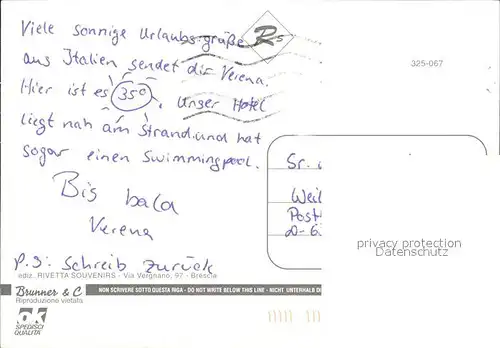 Viele sonnige Urlaubsgrüße
aus Italien sendet dir Verena.
Hier ist es 35°. Unser Hotel
liegt nah am Strand und hat
sogar einen Swimmingpool.
Bis bald
Verena
P.S: Schreib zurück
ediz. RIVETTA SOUVENIRS - Via Vergnano, 97 - Brescia
Brunner & C
Riproduzione vietata
NON SCRIVERE SOTTO QUESTA RIGA - DO NOT WRITE BELOW THIS LINE - NICHT UNTERHALB D
OK
SPEDISCI
QUALITA'
Rs
325-067
Sr.
Weil
Post
D-6
privacy protection
Datenschutz